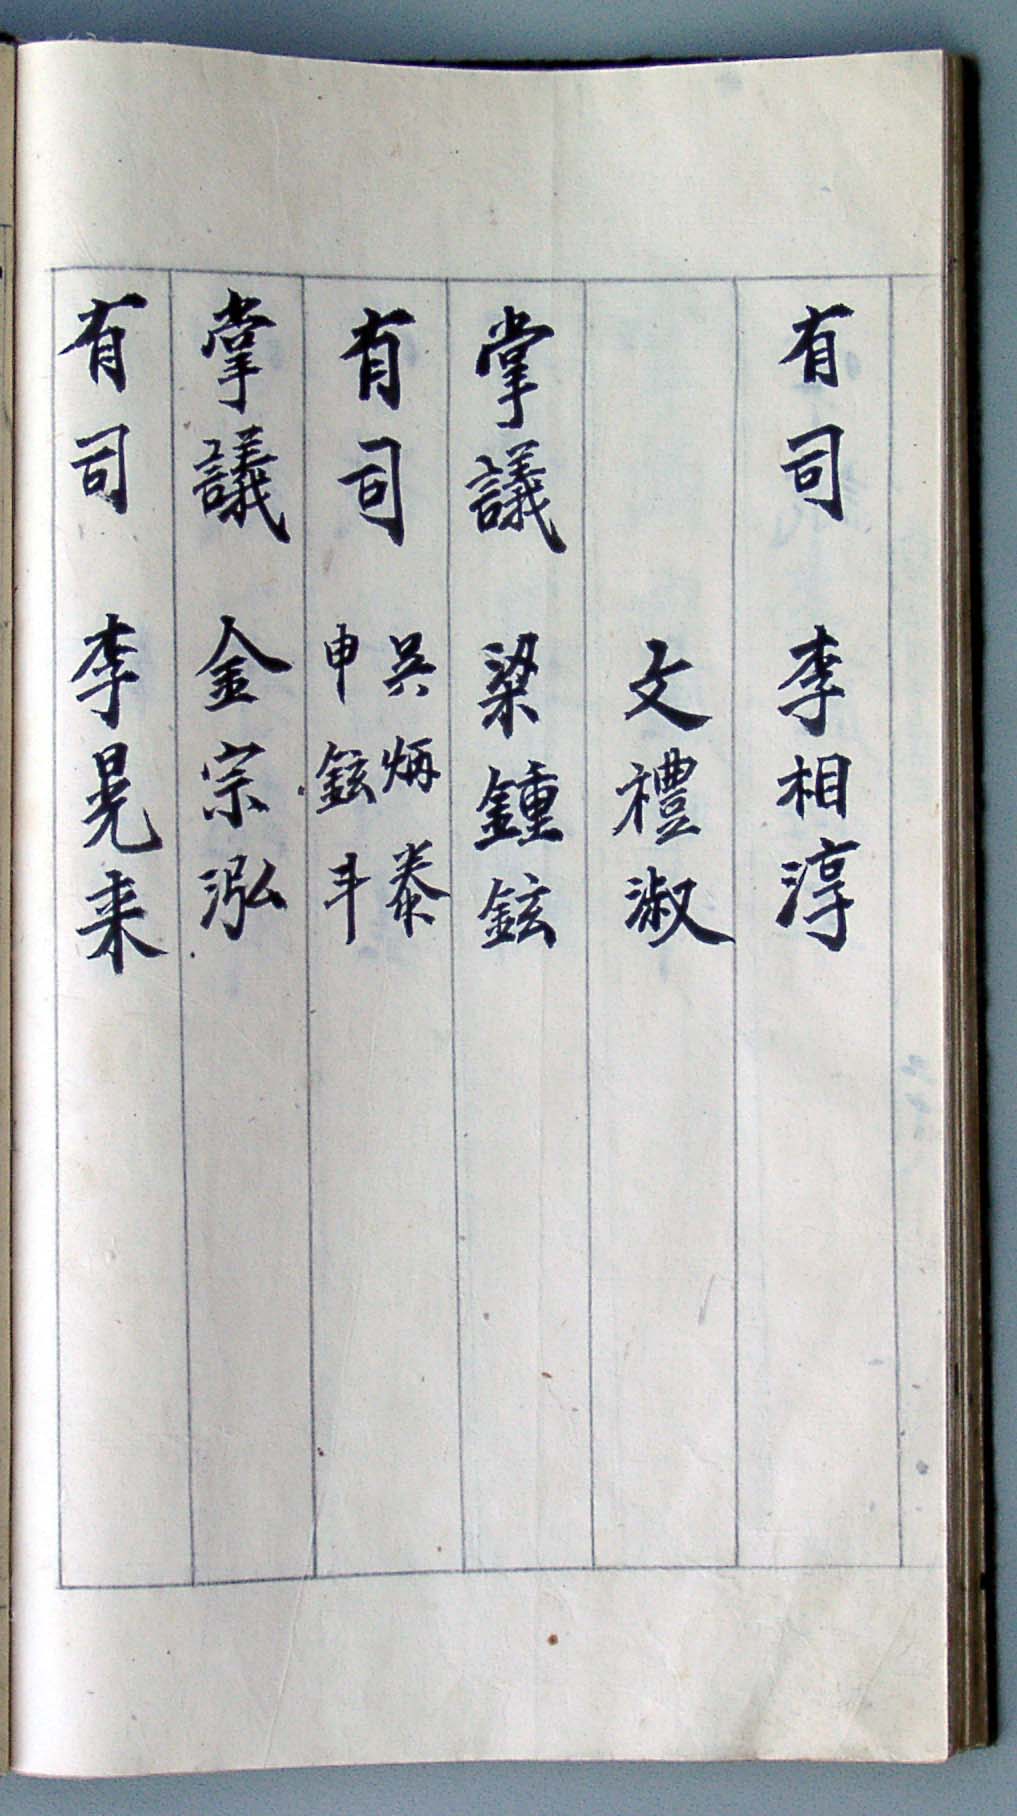 有司 李相淳
文禮淑
掌議 梁鍾鉉
有司 吳炳泰
申鉉斗
掌議 金宗泓
有司 李晃来